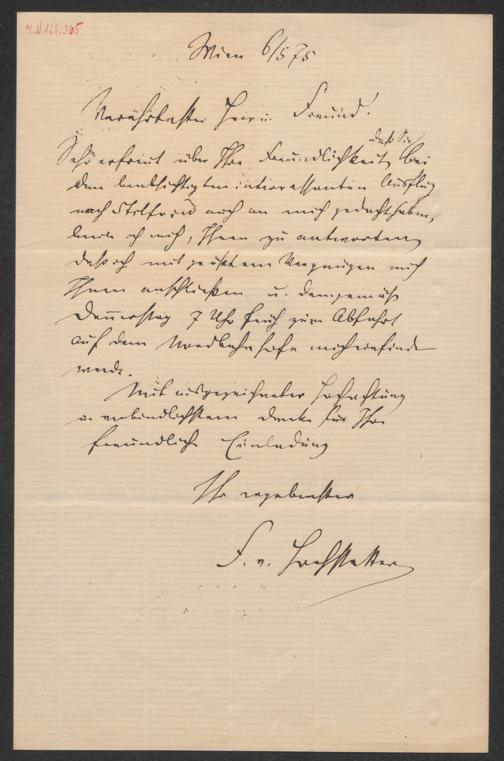 J.N. 124.065
Wien 6/5 75
Verehrtester Herr u. Freund!
daß Sie
Sehr erfreut über Ihre Freundlichkeit, bei
dem beabsichtigten interessanten Ausflug
nach Stillfried auch an mich gedacht haben,
beeile ich mich, Ihnen zu antworten,
daß ich mit größtem Vergnügen mich
Ihnen anschließen u. demgemäß
Donnerstag 7 Uhr früh zur Abfahrt
auf dem Nordbahnhofe mich einfinden
werde.
Mit ausgezeichneter Hochachtung
u. verbindlichstem Danke für Ihre
freundliche Einladung
Ihr ergebenster
F. v. Hochstetter